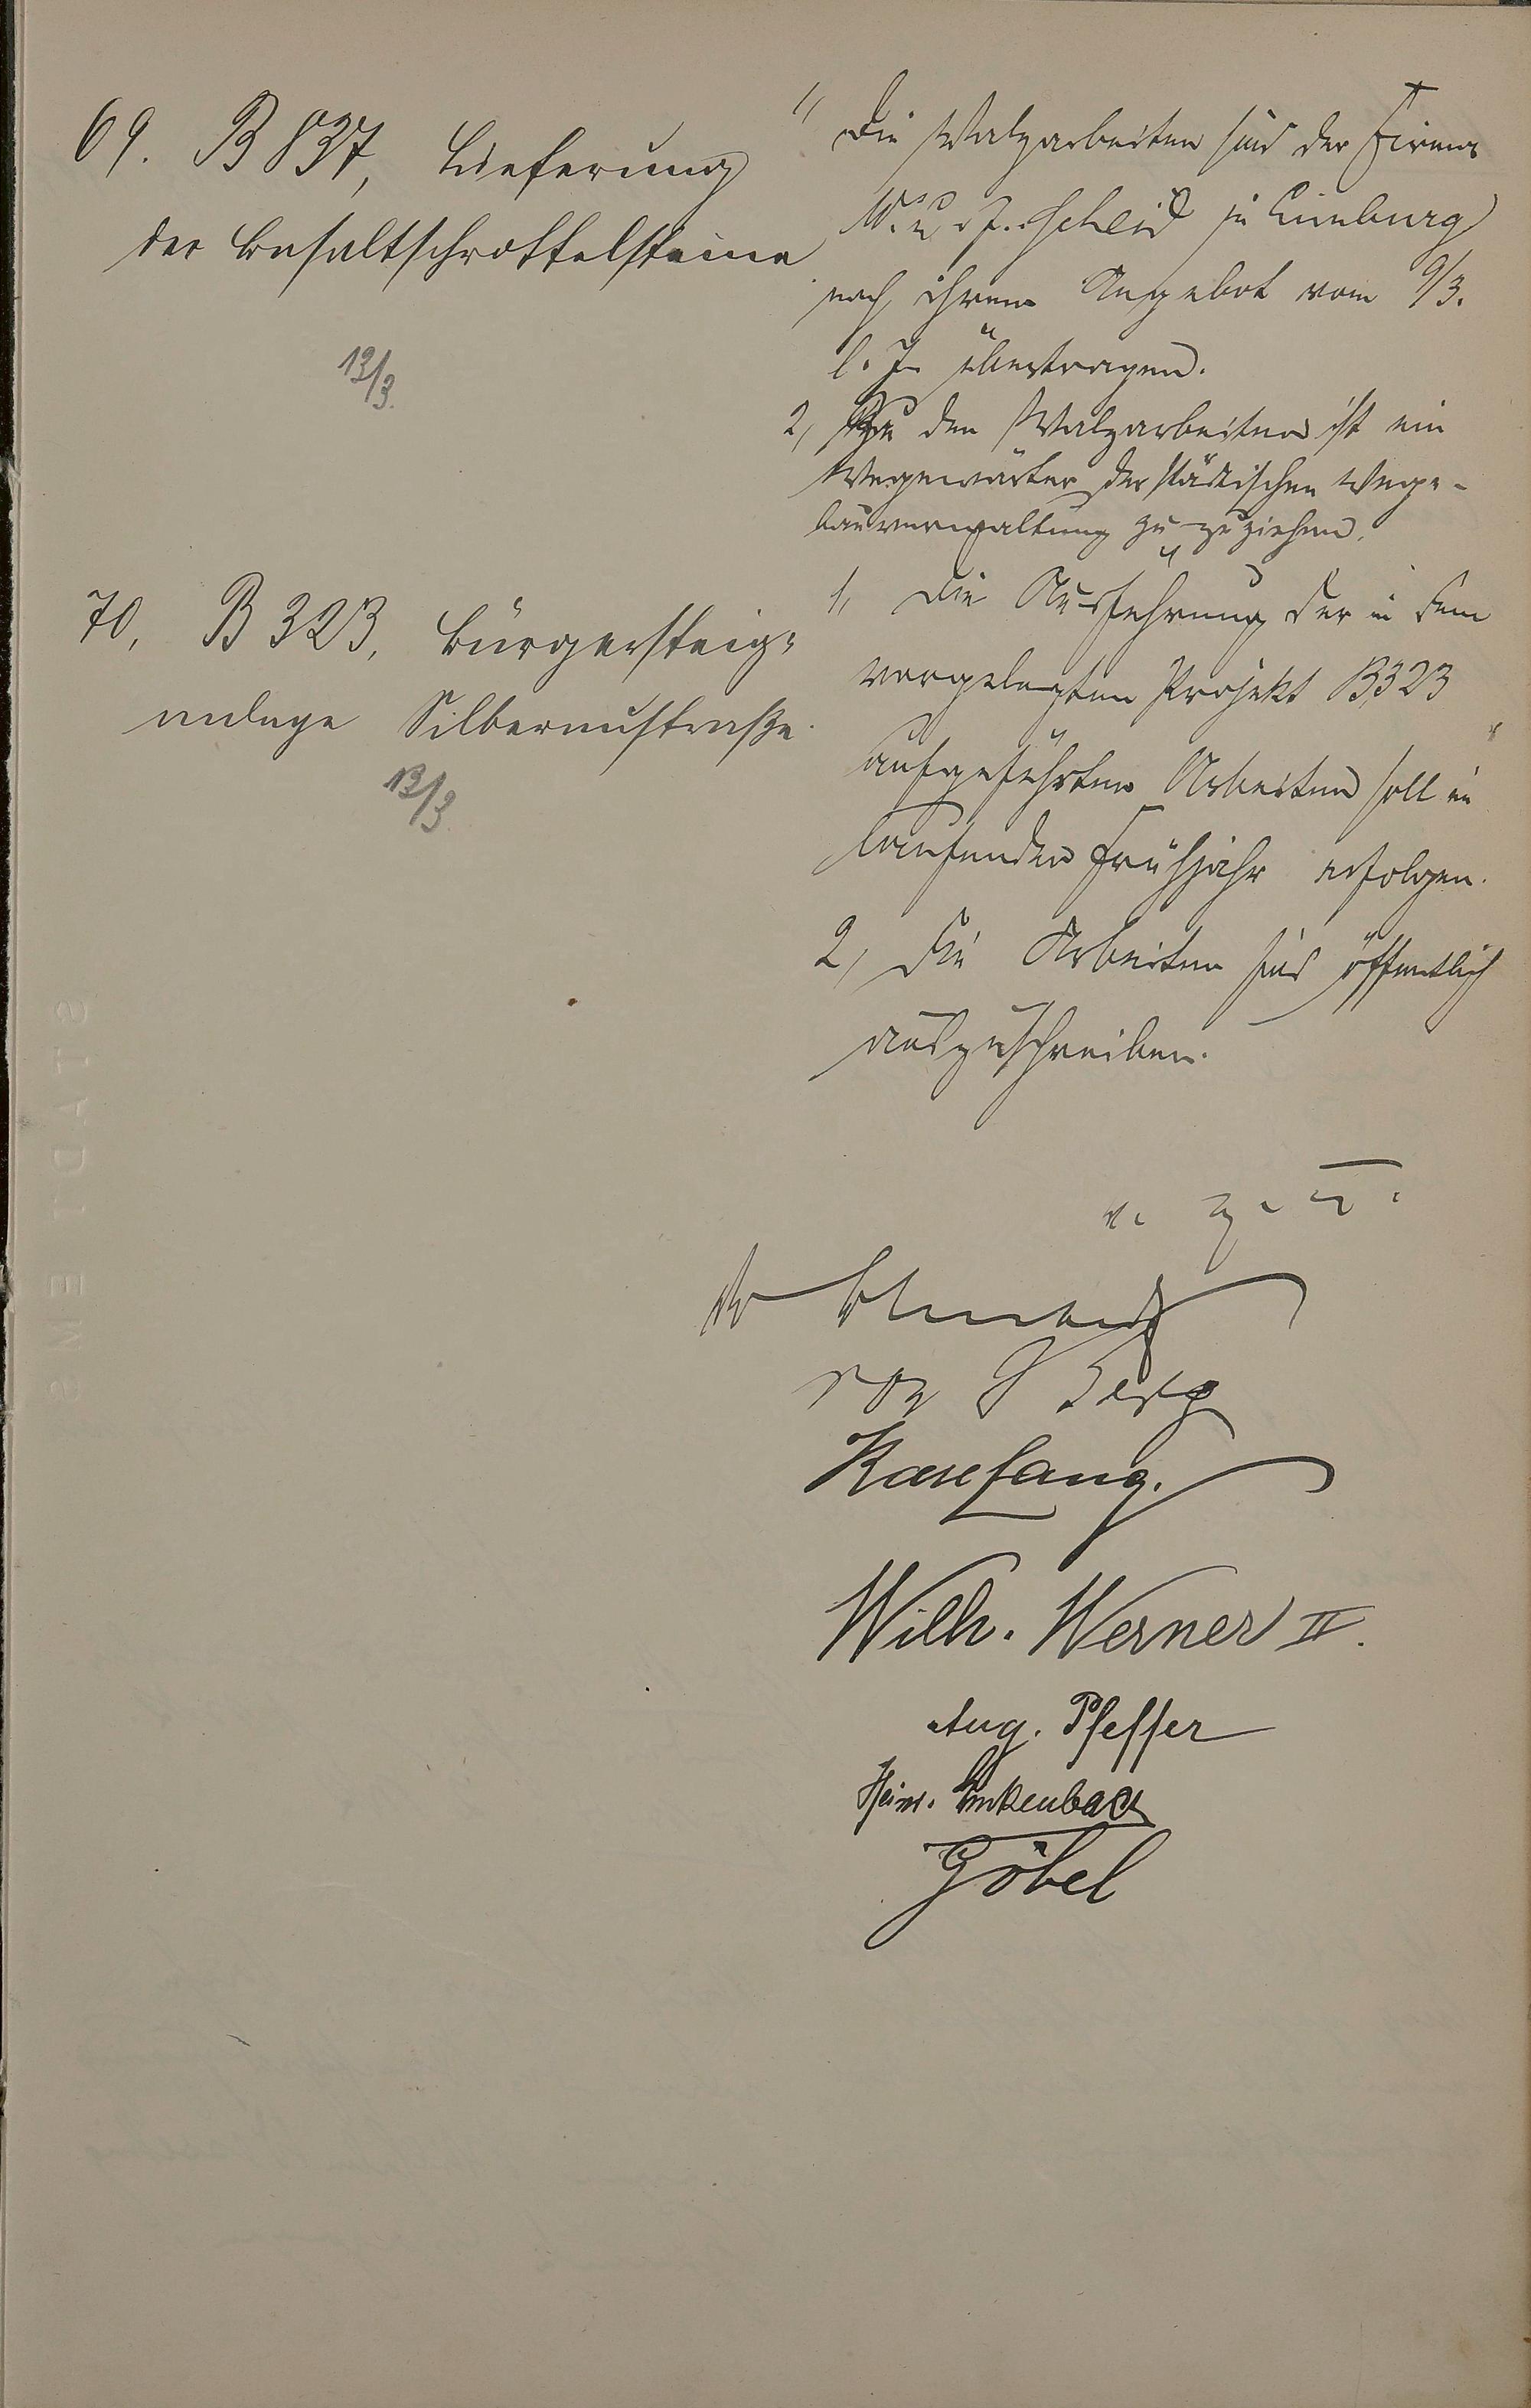 69. B 837, Lieferung
der Basaltschrottelsteine
13/3.
1, Die Walzarbeiten sind der Firma
W. u. J. Scheid in Limburg
nach ihrem Angebot vom 9/3.
l. J. übertragen.
2, Zu den Walzarbeiten ist ein
Wegewärter der städtischen Wege-
bauverwaltung zu zuziehen.
70, B 323, Bürgersteig-
anlage Silberaustraße.
13/3
1, Die Ausführung der in dem
vorgelegten Projekt B 323
aufgeführten Arbeiten soll im
laufenden Frühjahr erfolgen.
2, Die Arbeiten sind öffentlich
auszuschreiben.
v. g. u.
Wilh. Werner II.
Aug. Pfeffer
Heinr. Linkenbach
Göbel
STADT EMS